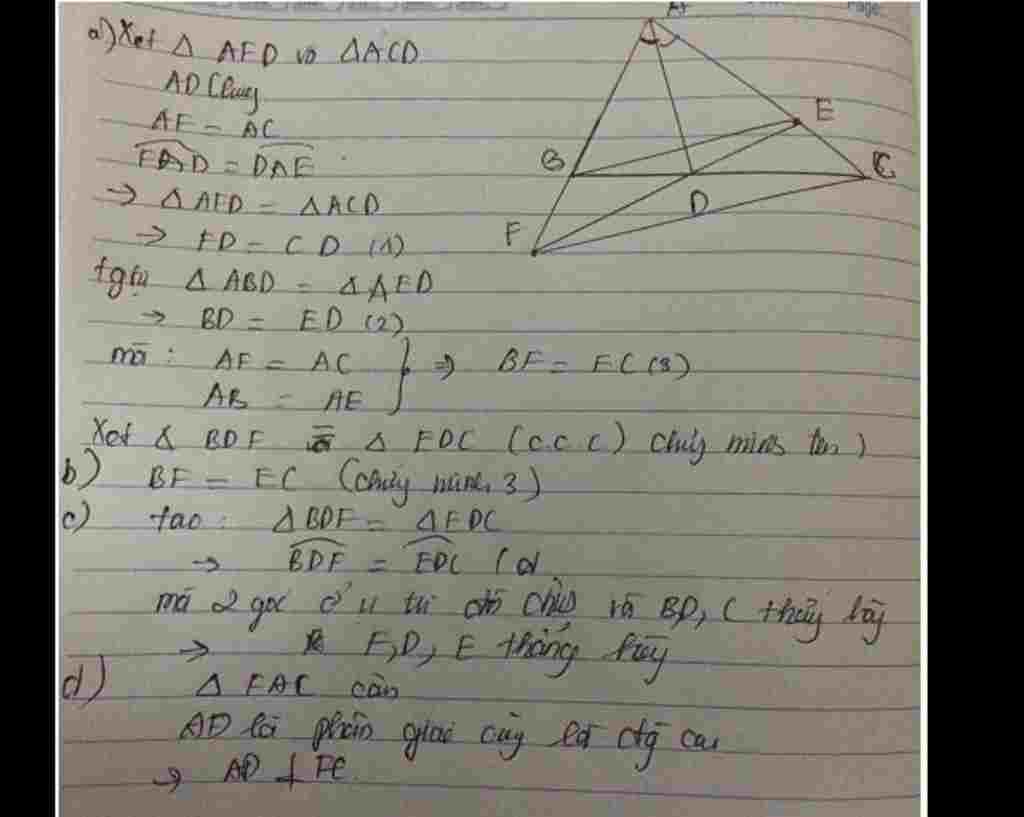 a) Xet Δ AFD và ΔACD
AD Chung
AF = AC
FAD = DAE
→ Δ AFD = ΔACD
→ FD = CD (1)
tgtự Δ ABD = Δ AED
→ BD = ED (2)
mà : AF = AC
AB = AE
⇒ BF = EC (3)
Xet Δ BDF = Δ EDC (c.c.c) chứng minh trên)
b) BF = EC (chứng minh 3)
c) ta có : ΔBDF = ΔEDC
→ BDF = EDC
mà 2 góc ở vị trí đối đỉnh và BD, C thẳng hàng
→ F, D, E thẳng hàng
d) Δ FAC cân
AD là phân giác cũng là đg cao
→ AD ⊥ FC
A
B
C
D
E
F
Page: